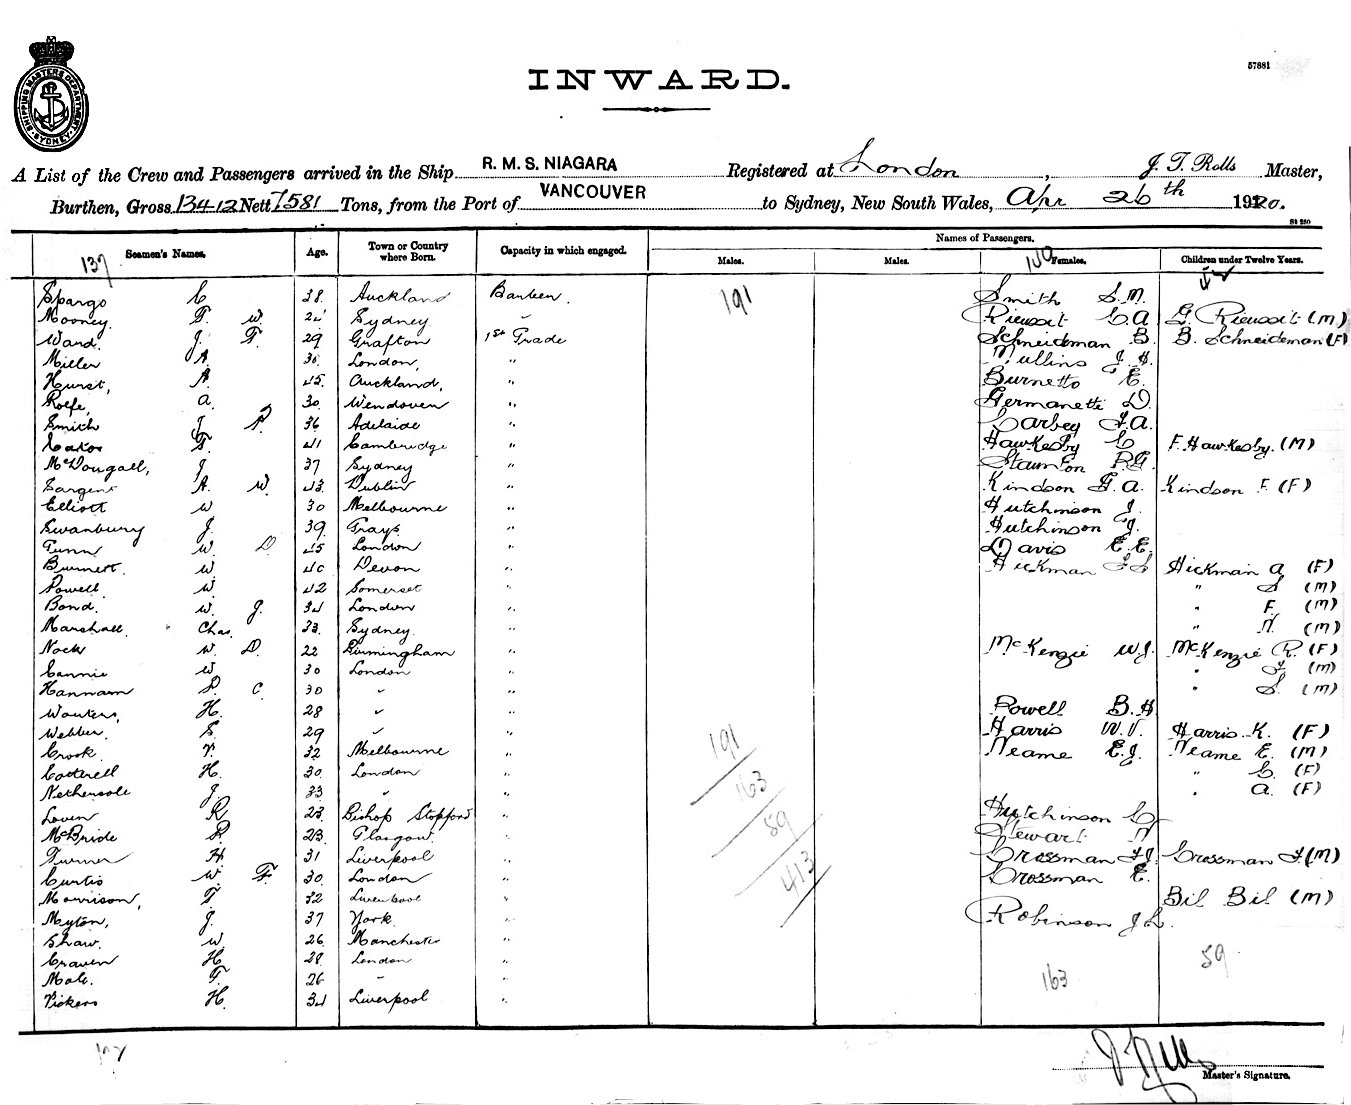 SHIPPING MASTERS DEPARTMENT SYDNEY
57881
INWARD.
A List of the Crew and Passengers arrived in the Ship R. M. S. NIAGARA Registered at London, J. T. Rolls Master,
Burthen, Gross 13412 Nett 7581 Tons, from the Port of VANCOUVER to Sydney, New South Wales, Apr 26th 1920.
St 250
Names of Passengers.
Seamen's Names. Age. Town or Country where Born. Capacity in which engaged. Males. Males. Females. Children under Twelve Years.
137
Spargo C 38 Auckland 191 Smith S.M.
Mooney F. W. Sydney " Rieussit C.A G Rieussit (M)
Ward J. F. 29 Grafton 1st Grade Schneideman B. B. Schneideman (F)
Miller A. London, " Mullins J. H.
Hurst, A. 45 Auckland, " Burnetto E.
Rolfe, A. 30 Wendoven " Germanette D.
Smith J 36 Adelaide " Carbey F.A.
F. 41 Cambridge " Hawkesby C F. Hawkesby. (M)
McDougall, J. 37 Sydney " Staunton P.G.
Sargent A. W. 43 Dublin " Kindson G.A. Kindson F. (F)
Elliott W 30 Melbourne " Hutchinson J.
Swanbury J. 39 Grays " Hutchinson J.
Tunn W. D 45 London " Davis E.E.
Burnett. W 40 Devon " Hickman Hickman A (F)
Powell W. 42 Somerset " " S (M)
Bond. W. J. 34 London " " F. (M)
Marshall Chas. 33 Sydney. " " N. (M)
Nock W. D. 22 Birmingham " McKenzie W.J. McKenzie R. (F)
Cannie W 30 London " " J. (M)
Hannam P. C. 30 " " " S. (M)
Wouters, H. 28 " " Powell B.H
Webber S. 29 " " 191 Harris W.V. Harris K. (F)
Crook 32 Melbourne " Neame E.J. Neame E. (M)
Cotterell H. 30 London " 163 " C. (F)
Nethersole J. 33 " " " A. (F)
Loven R 23 Bishop Stopford " 59 Hutchinson C
McBride P. 23 Glasgow " Stewart N
Turner H 31 Liverpool " 413 Crossman F.J. Crossman F. (M)
Curtis W F. 30 London " Crossman E.
Morrison, F. 32 Liverpool " Bil Bil (M)
Myton, J. 37 York " Robinson J L.
Shaw. W. 26 Manchester "
Craven H 28 London " 59
Male. F. 26 " " 163
Vickers H. 34 Liverpool "
J T Rolls
Master's Signature.